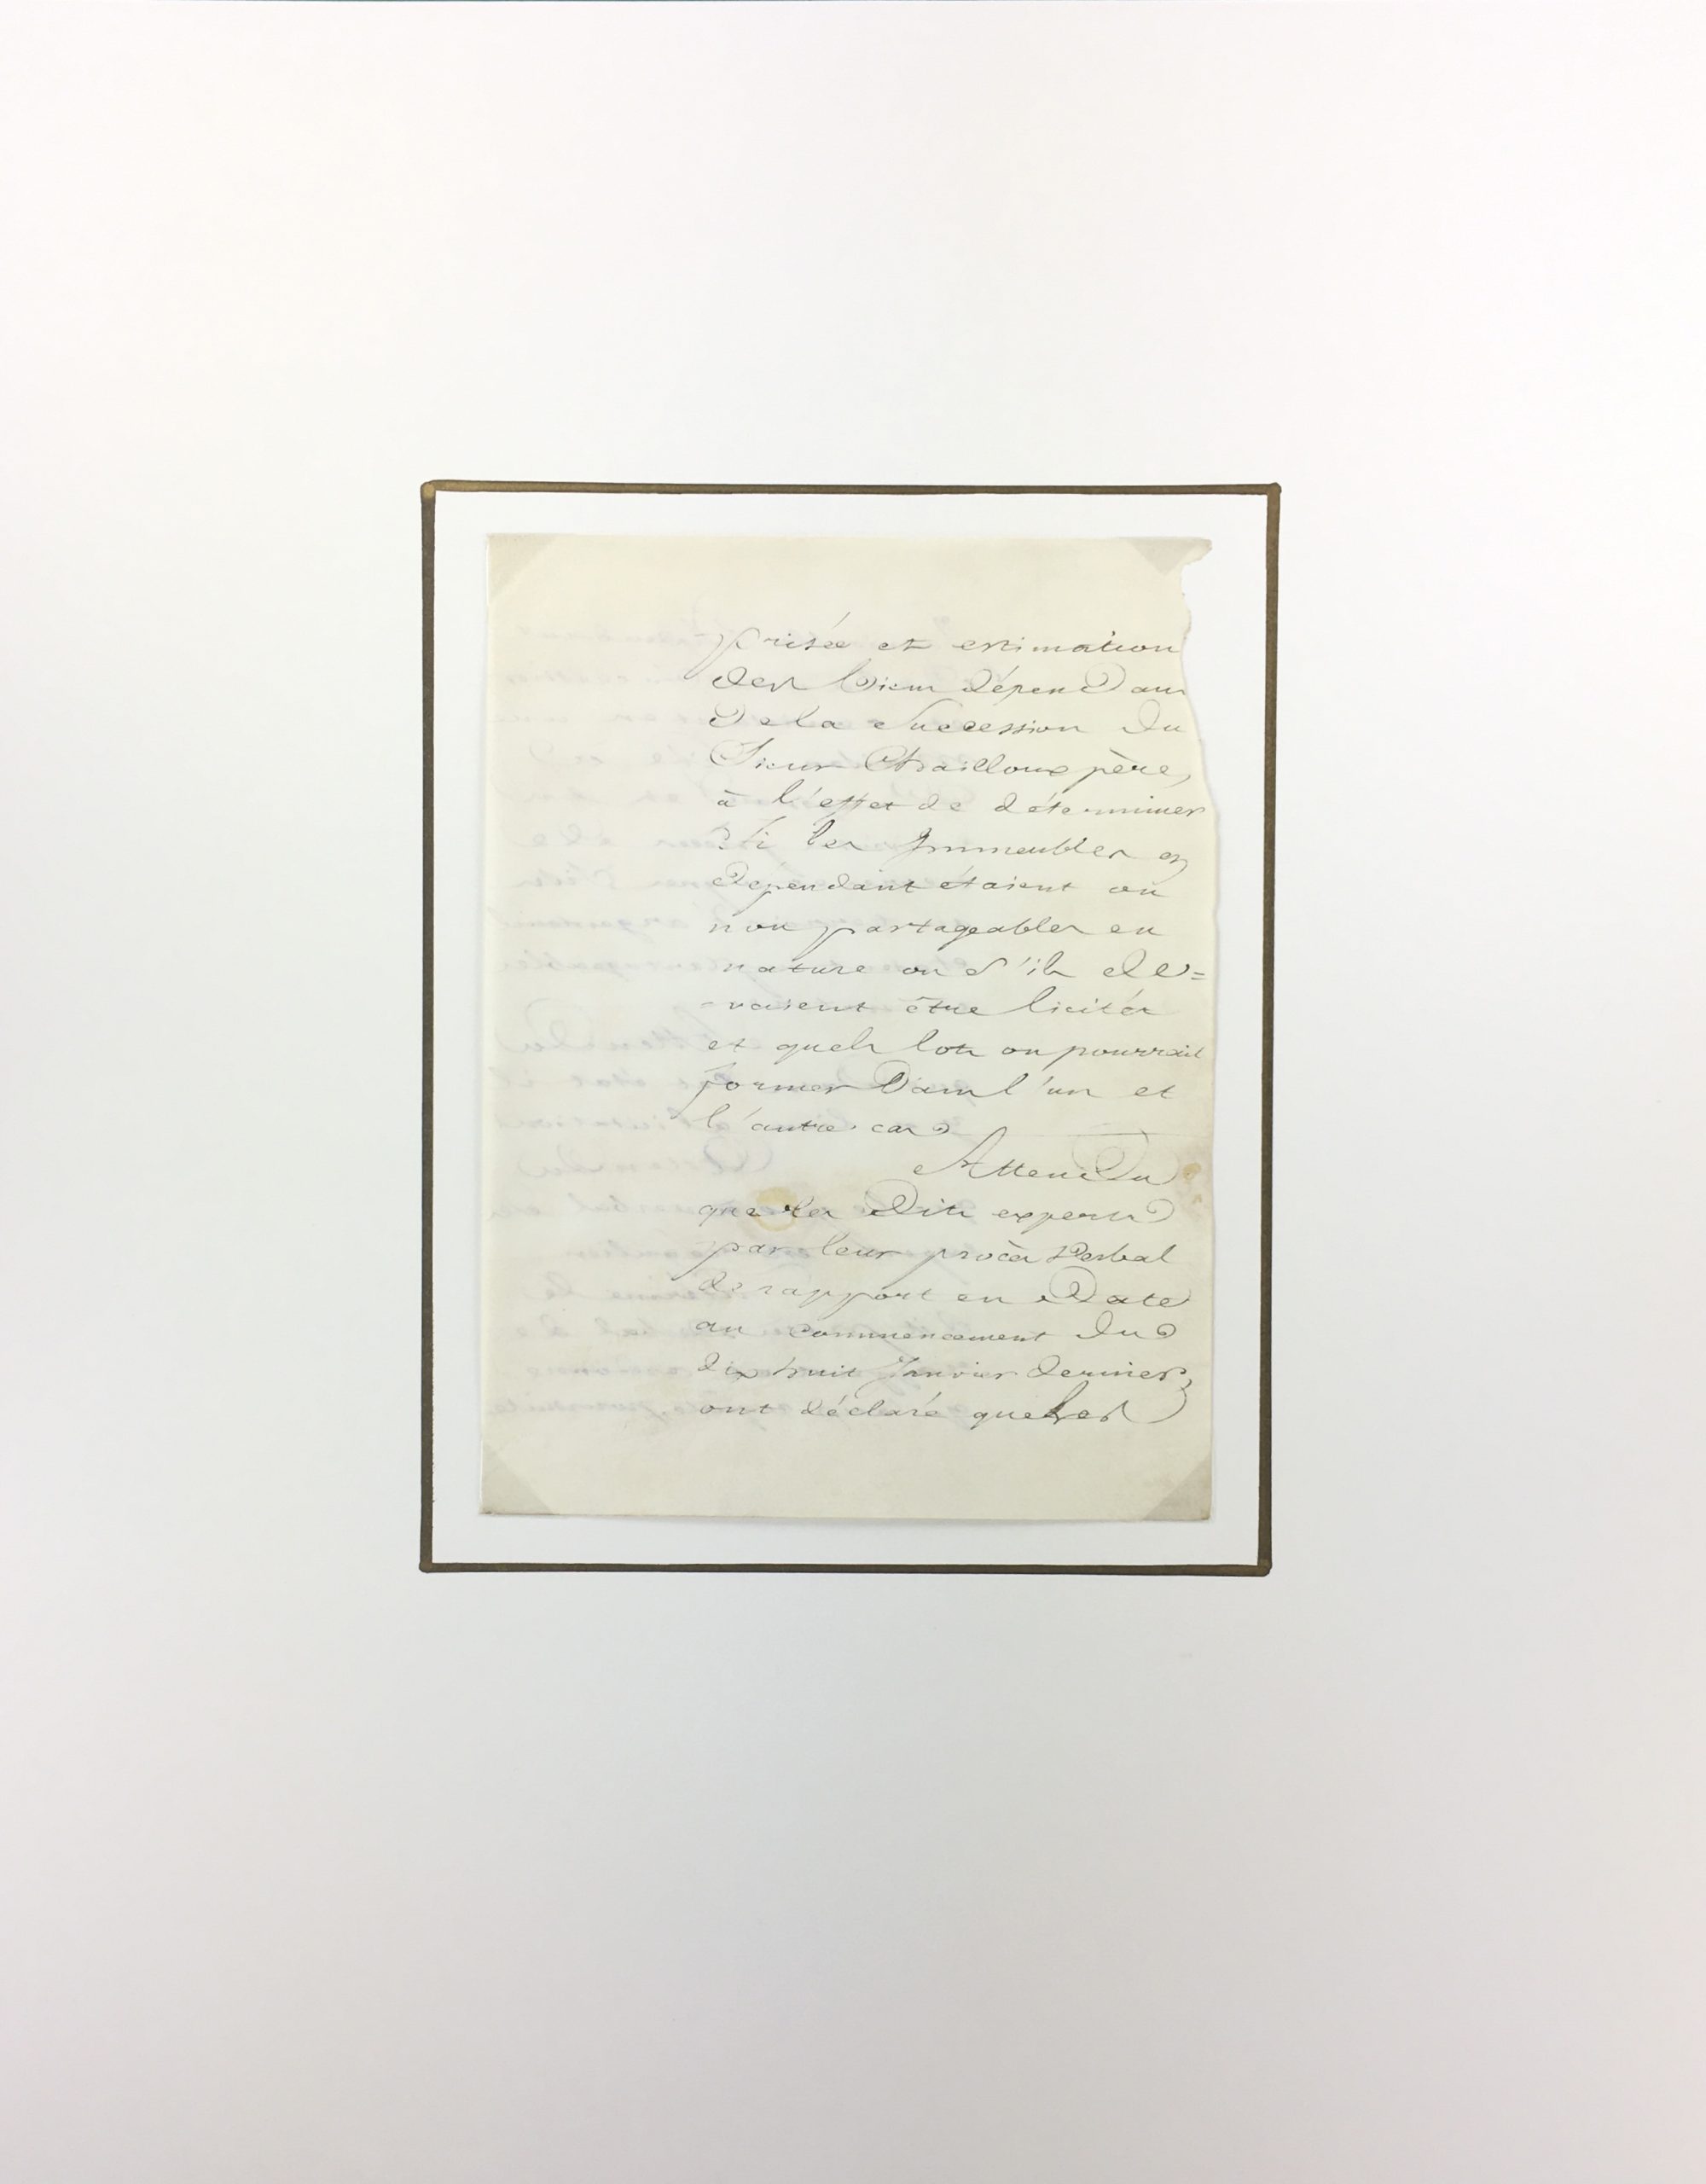 prisée et estimation
des biens dépendans
de la succession du
Sieur Chailloux père,
à l'effet de déterminer
si les Immeubles en
dépendant étaient ou
non partageables en
nature ou s'ils de=
-vaient être licités
et quels lots on pourrait
former dans l'un et
l'autre cas
Attendu
que les dits experts
par leur procès verbal
de rapport en date
au commencement du
dix huit Janvier dernier,
ont déclaré que les